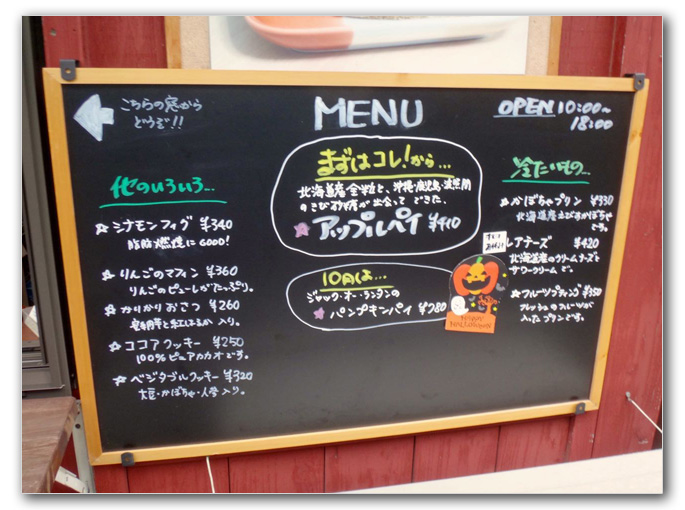 こちらの窓から
どうぞ!!
MENU
OPEN 10:00~
18:00
他のいろいろ...
シナモンフィグ ¥340
脂肪燃焼にGOOD!
りんごのマフィン ¥360
りんごのピューレがたっぷり。
かりかりおさつ ¥260
安納芋と紅はるか入り。
ココアクッキー ¥250
100%ピュアカカオです。
ベジタブルクッキー ¥320
大豆・かぼちゃ・人参入り。
まずはコレ!から...
北海道産全粒粉と、沖縄・鹿児島・波照間
のきび砂糖が出会ってできた、
アップルパイ ¥410
10月は...
ジャック・オー・ランタンの
パンプキンパイ ¥780
冷たいもの...
かぼちゃプリン ¥330
北海道産えびすかぼちゃ
レアチーズ ¥420
北海道産のクリームチーズと
サワークリームで。
フルーツプディング ¥350
フレッシュのフルーツが
入ったプリンです。
HAPPY
HALLOWEEN